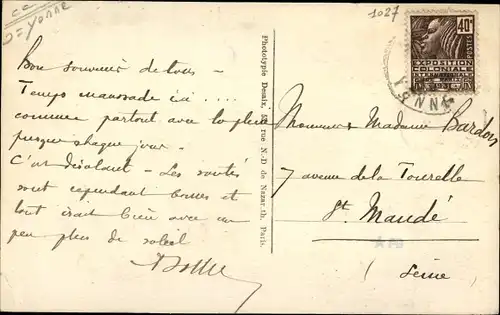 = Yonne
1027
Bon souvenir de tous -
Temps maussade ici ....
comme partout avec la pluie
presque chaque jour -
C'est désolant - Les santés
sont cependant bonnes et
tout irait bien avec un
peu plus de soleil
Phototypie Desaix, rue N.-D. de Nazareth, Paris.
40c
POSTES
EXPOSITION
COLONIALE
INTERNATIONALE
YONNE
Monsieur Madame Bardon
7 avenue de la Tourelle
St. Mandé
(Seine